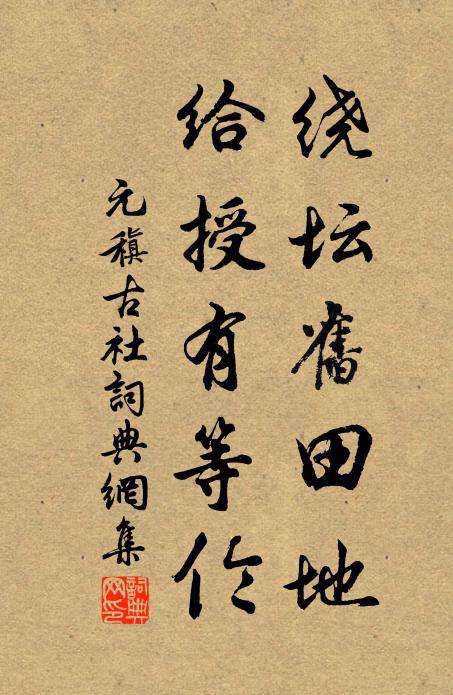 绕坛舊田地
给授有等伦
元稹古社詞典網集
詞典網印